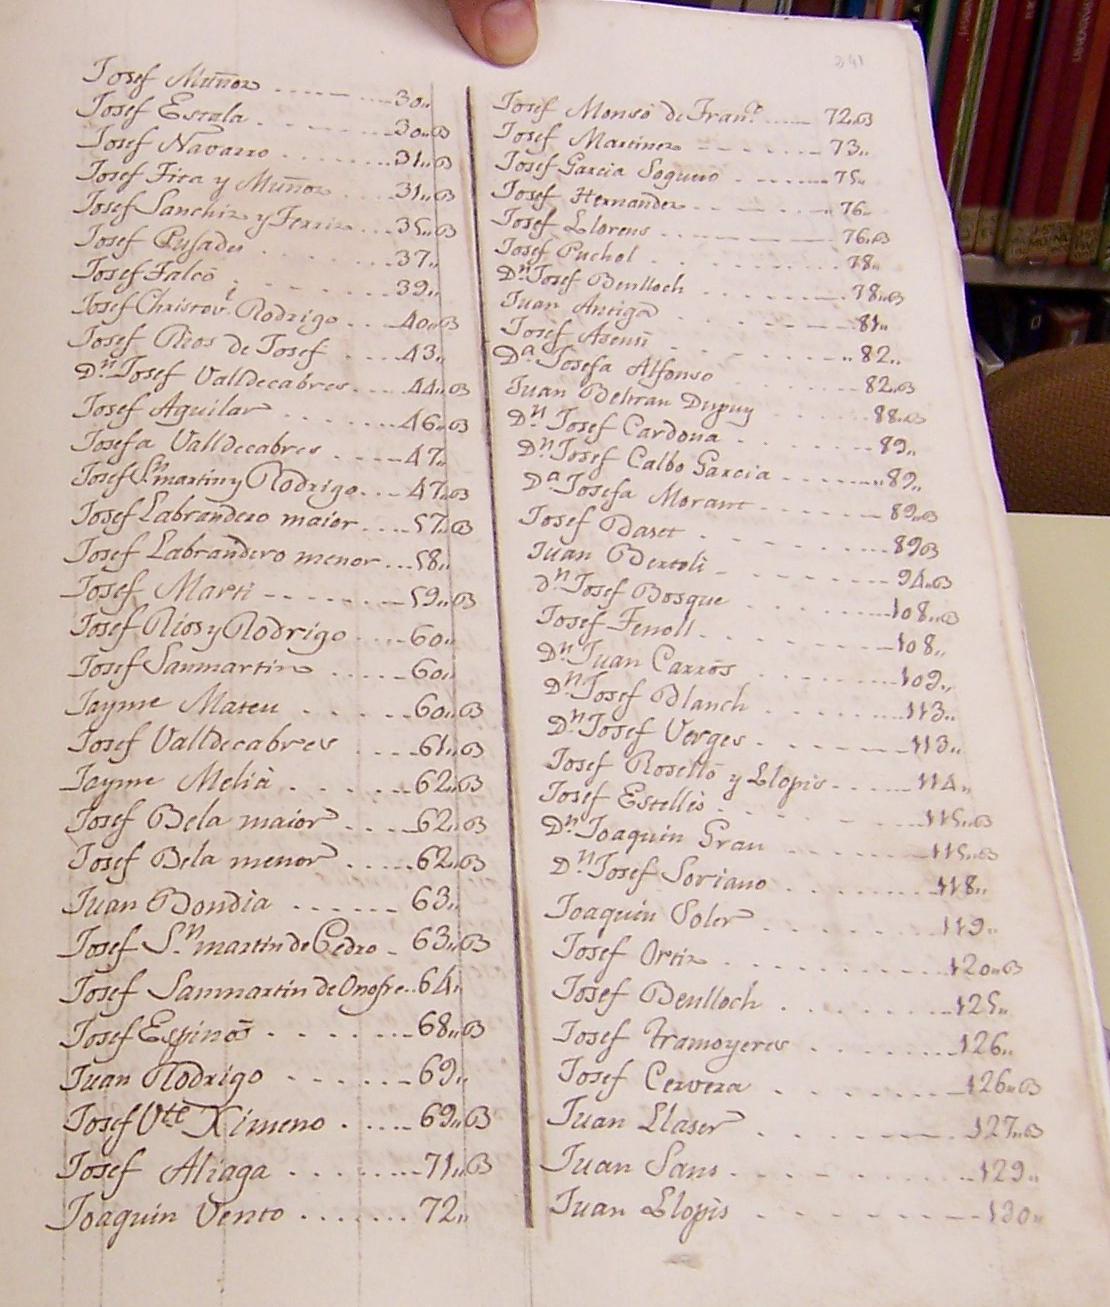 341
Josef Muñoz ........ 30..
Josef Escala ........ 30..B
Josef Navarro ........ 31..B
Josef Fita y Muñoz ........ 31..B
Josef Sanchiz y Ferriz ... 35..B
Josef Pusadés ........ 37..
Josef Falcó ........ 39..
Josef Christov.l Rodrigo .... 40..B
Josef Rios de Josef .... 43..
D.n Josef Valldecabres .... 44..B
Josef Aguilar ...... 46..B
Josefa Valldecabres ..... 47..
Josef S.n martin y Rodrigo .... 47..B
Josef Labrandero maior .... 57..B
Josef Labrandero menor ... 58..
Josef Marti ........ 59..B
Josef Rios y Rodrigo .... 60..
Josef Sanmartin ..... 60..
Jayme Mateu ..... 60..B
Josef Valldecabres .... 61..B
Jayme Meliá ...... 62..B
Josef Bela maior .... 62..B
Josef Bela menor ..... 62..B
Juan Bondia ...... 63..
Josef S.n martin de Pedro . 63..B
Josef Sanmartin de Onofre .. 64..
Josef Espinós ....... 68..B
Juan Rodrigo ...... 69..
Josef Vte Ximeno ..... 69..B
Josef Aliaga ........ 71..B
Joaquin Vento ....... 72..
Josef Monsó de Fran.co ..... 72..B
Josef Martinez ........ 73..
Josef Garcia Soguero ....... 75..
Josef Hernandez ........ 76..
Josef Llorens ........ 76..B
Josef Puchol ........ 78..
D.n Josef Benlloch ........ 78..B
Juan Artiga ........ 81..
Josef Asensi ........ 82..
D.a Josefa Alfonso ...... 82..B
Juan Beltran Dupuy ...... 88..B
D.n Josef Cardona ....... 89..
D.n Josef Calbo Garcia ........ 89..
D.a Josefa Morant ....... 89..B
Josef Daset ........ 89B
Juan Bertoli ........ 94..B
D.n Josef Bosque ........ 108..B
Josef Fenoll ........ 108..
D.n Juan Carrós ........ 109..
D.n Josef Blanch ........ 113..
D.n Josef Verges ........ 113..
Josef Roselló y Llopis ...... 114..
Josef Estellés ........ 115..B
D.n Joaquin Grau ....... 115..B
D.n Josef Soriano ........ 118..
Joaquin Soler ........ 119..
Josef Ortiz ........ 120..B
Josef Benlloch ........ 125..
Josef Tramoyeres ........ 126..
Josef Cervera ........ 126..B
Juan Llaser ........ 127..B
Juan Sans ........ 129..
Juan Llopis ........ 130..